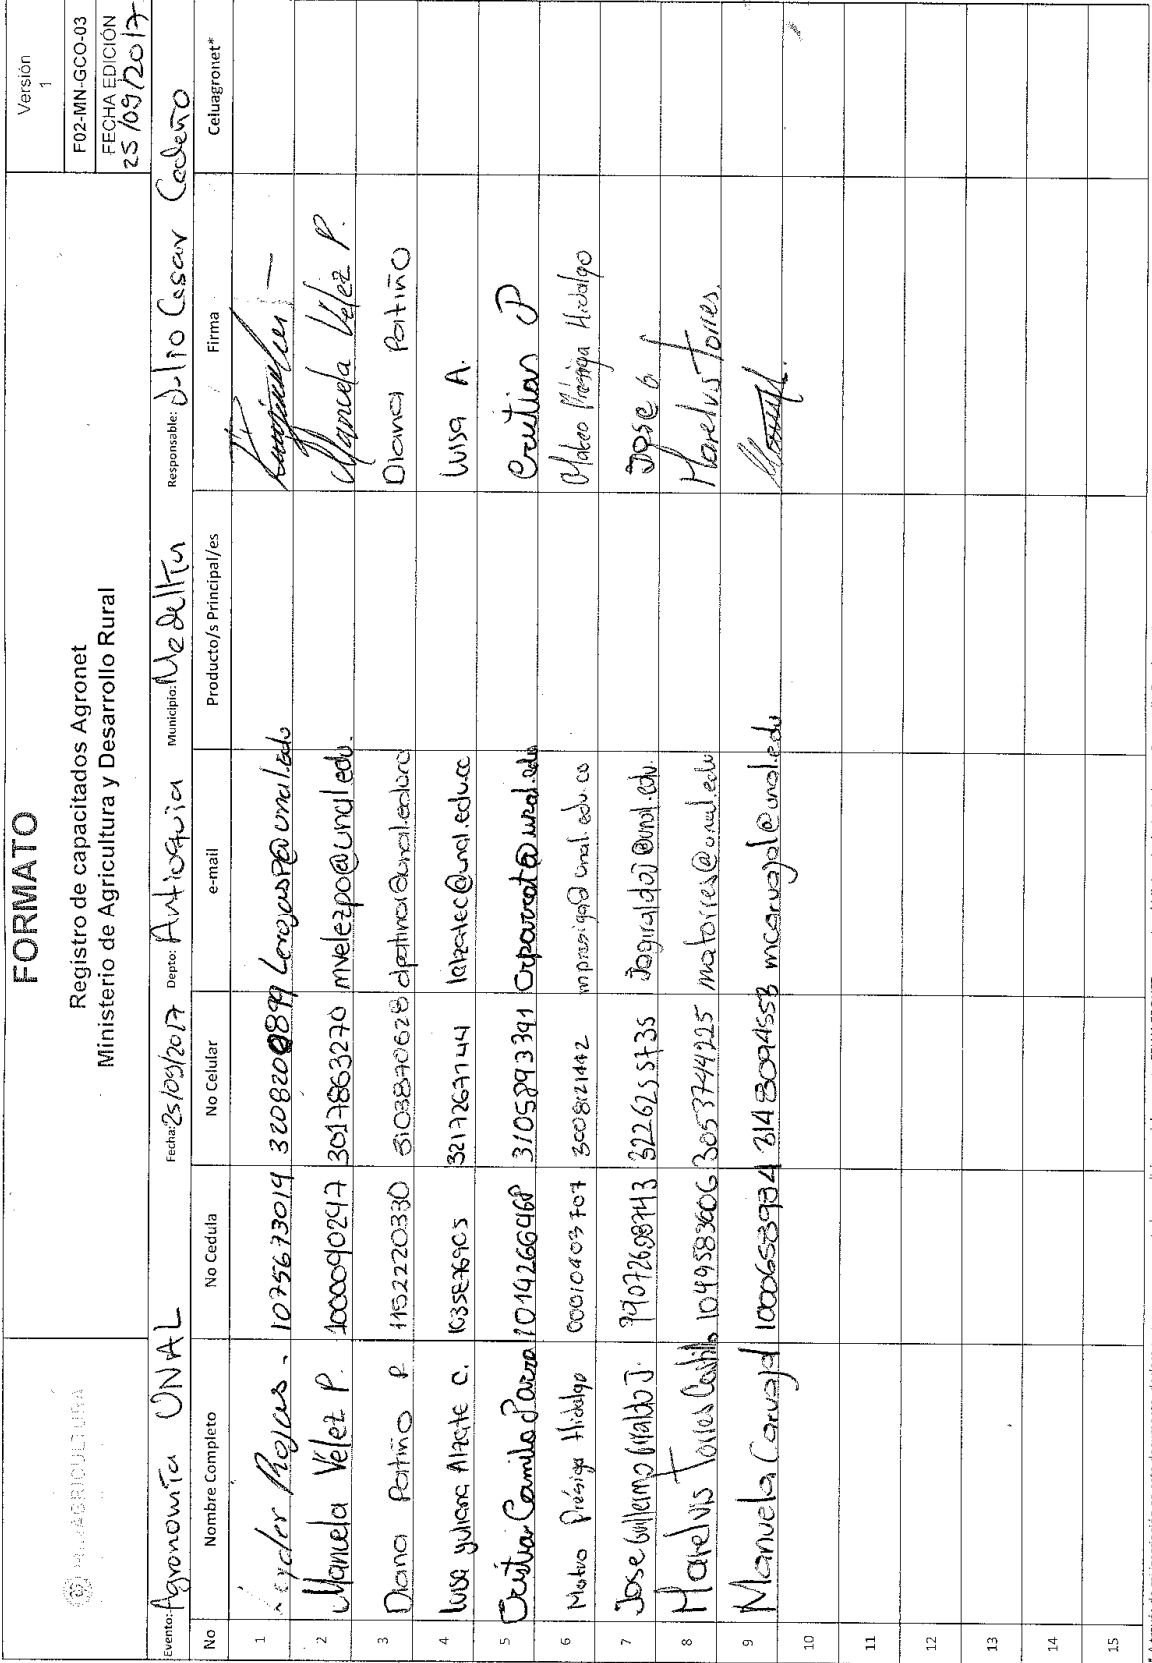 MINAGRICULTURA
FORMATO
Registro de capacitados Agronet
Ministerio de Agricultura y Desarrollo Rural
Versión
1
F02-MN-GCO-03
FECHA EDICIÓN
25/09/2017
Evento: Agronomía UNAL Fecha: 25/09/2017 Depto: Antioquia Municipio: Medellín Responsable: Julio Cesar Cedeño
No Nombre Completo No Cedula No Celular e-mail Producto/s Principal/es Firma Celuagronet*
1 Leyder Rojas. 1075673019 3208208899 Lerojasp@unal.edu
2 Manuela Vélez P. 1000090247 3017863270 mvelezpo@unal.edu. Manuela Vélez P.
3 Diana Patiño P. 1152220330 3103870628 dpatinor@unal.edu.co Diana Patiño
4 Luisa yuliana Alzate C. 3217267144 lalzatec@unal.edu.co Luisa A.
5 Cristian Camilo Parra 1014266468 3105893391 crparrat@unal.edu Cristian P
6 Mateo Présiga Hidalgo 00010403707 3008121442 mpresiga@unal.edu.co Mateo Présiga Hidalgo
7 Jose Guillermo Giraldo J. 99072608743 3226255735 Jogiraldoj@unal.edu. Jose G
8 Marelvis Torres Castillo 1049583606 3053744225 matorres@unal.edu Marelvis Torres.
9 Manuela Carvajal 1000658984 3148094553 mcarvajal@unal.edu
10
11
12
13
14
15